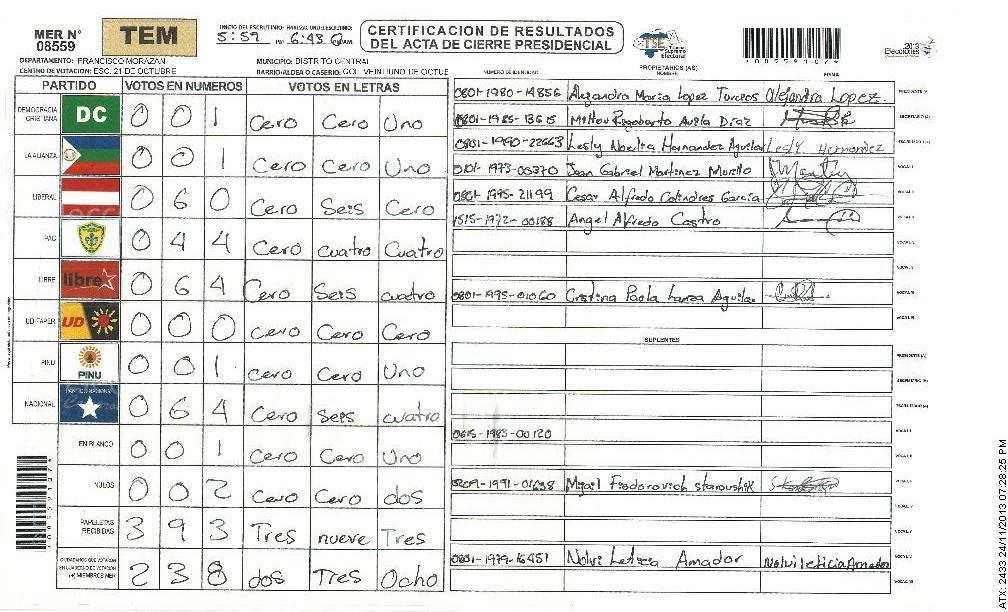 MER N° 08559
TEM
INICIO DEL ESCRUTINIO: FINALIZACION DEL ESCRUTINIO:
5:59 PM 6:43
CERTIFICACION DE RESULTADOS
DEL ACTA DE CIERRE PRESIDENCIAL
TSE Tribunal Supremo Electoral
2013 Elecciones
DEPARTAMENTO: FRANCISCO MORAZAN
MUNICIPIO: DISTRITO CENTRAL
CENTRO DE VOTACION: ESC. 21 DE OCTUBRE
BARRIO/ALDEA O CASERIO: COL. VEINTIUNO DE OCTUE
NUMERO DE IDENTIDAD: PROPIETARIOS (AS) NOMBRE FIRMA
PARTIDO VOTOS EN NUMEROS VOTOS EN LETRAS
DEMOCRACIA CRISTIANA DC 0 0 1 Cero Cero Uno
LA ALIANZA 0 0 Cero Cero Uno
LIBERAL 0 6 0 Cero Seis Cero
PAC 0 4 4 Cero cuatro Cuatro
LIBRE libre 0 6 4 Cero Seis cuatro
UD-FAPER UD 0 0 0 Cero Cero Cero
PINU PINU 0 0 1 Cero Cero Uno
NACIONAL 0 6 4 Cero Seis cuatro
EN BLANCO 0 0 1 Cero Cero Uno
NULOS 0 0 2 Cero Cero dos
PAPELETAS RECIBIDAS 3 9 3 Tres nueve Tres
CIUDADANOS QUE VOTARON EN CUADERNO DE VOTACION (+) MIEMBROS MER 2 3 8 dos Tres Ocho
0801-1980-14856 Alejandra Maria Lopez Turcios Alejandra Lopez. PRESIDENTE (A)
0801-1985-13615 Milton Rigoberto Avila Diaz SECRETARIO (A)
0801-1990-22663 Lesly Noelia Hernandez Aguilar Lesly Hernandez
0101-1973-00370 Juan Gabriel Martinez Murillo VOCAL I
0801-1995-21199 Cesar Alfredo Colindres Garcia
1515-1972-00188 Angel Alfredo Castro
0801-1995-01060 Cristina Paola Lanza Aguilar
SUPLENTES
PRESIDENTE (A)
SECRETARIO (A)
0615-1983-00120
0209-1991-01638 Migail Fiodorovich staroushik
0801-1979-16451 Nolvi Leticia Amador Nolvi leticia Amador
08559107
ATX: 2433 24/11/2013 07:28:25 PM